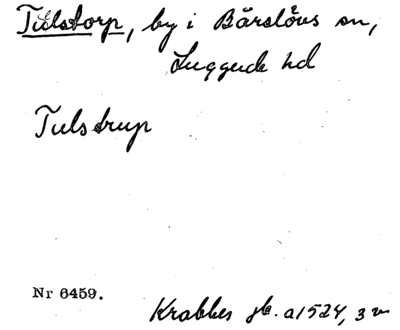 Tulstorp, by i Bårslövs sn,
Luggude hd
Tulstrup
Nr 6459.
Krabbes jb. a1524, 3 v